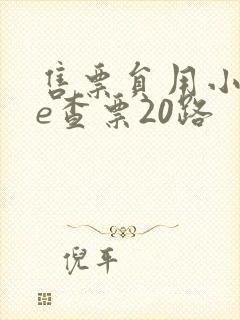 售票员用小
e查票20路
倪平